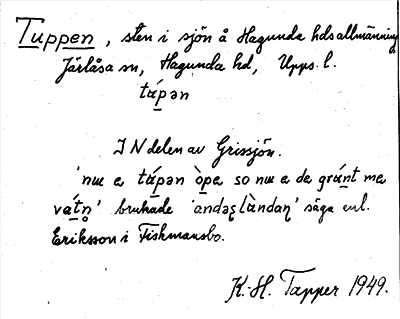 Tuppen, sten i sjön å Hagunda hds allmänning
Järlåsa sn, Hagunda hd, Upps. l.
tápən
I N delen av Grissjön.
'nu e tápən òpe so nu e de gránt me
vátn̥' brukade 'andəs̨ làndaṇ' säga enl.
Eriksson i Fiskmansbo.
K.-H. Tapper 1949.